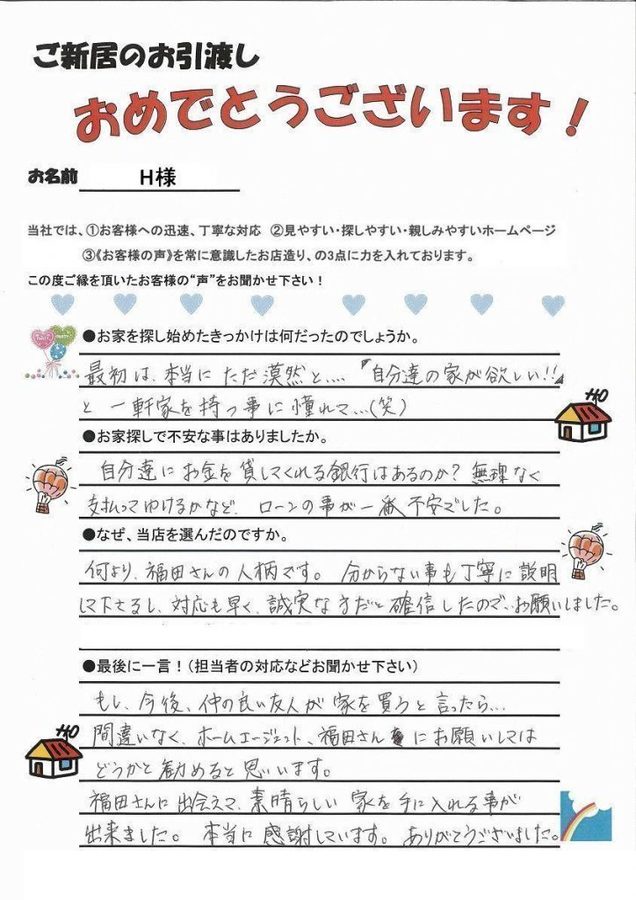 ご新居のお引渡し
おめでとうございます！
お名前 H様
当社では、①お客様への迅速、丁寧な対応 ②見やすい・探しやすい・親しみやすいホームページ
③《お客様の声》を常に意識したお店造り、の3点に力を入れております。
この度ご縁を頂いたお客様の“声”をお聞かせ下さい！
●お家を探し始めたきっかけは何だったのでしょうか。
最初は、本当にただ漠然と....『自分達の家が欲しい!!』
と一軒家を持つ事に憧れて...(笑)
●お家探しで不安な事はありましたか。
自分達にお金を貸してくれる銀行はあるのか？無理なく
支払ってゆけるかなど、ローンの事が一番不安でした。
●なぜ、当店を選んだのですか。
何より、福田さんの人柄です。分からない事も丁寧に説明
して下さるし、対応も早く、誠実な方だと確信したので、お願いしました。
●最後に一言！（担当者の対応などお聞かせ下さい）
もし、今後、仲の良い友人が家を買うと言ったら...
間違いなく、ホームエージェント、福田さんにお願いしては
どうかと勧めると思います。
福田さんに出会えて、素晴らしい家を手に入れる事が
出来ました。本当に感謝しています。ありがとうございました。